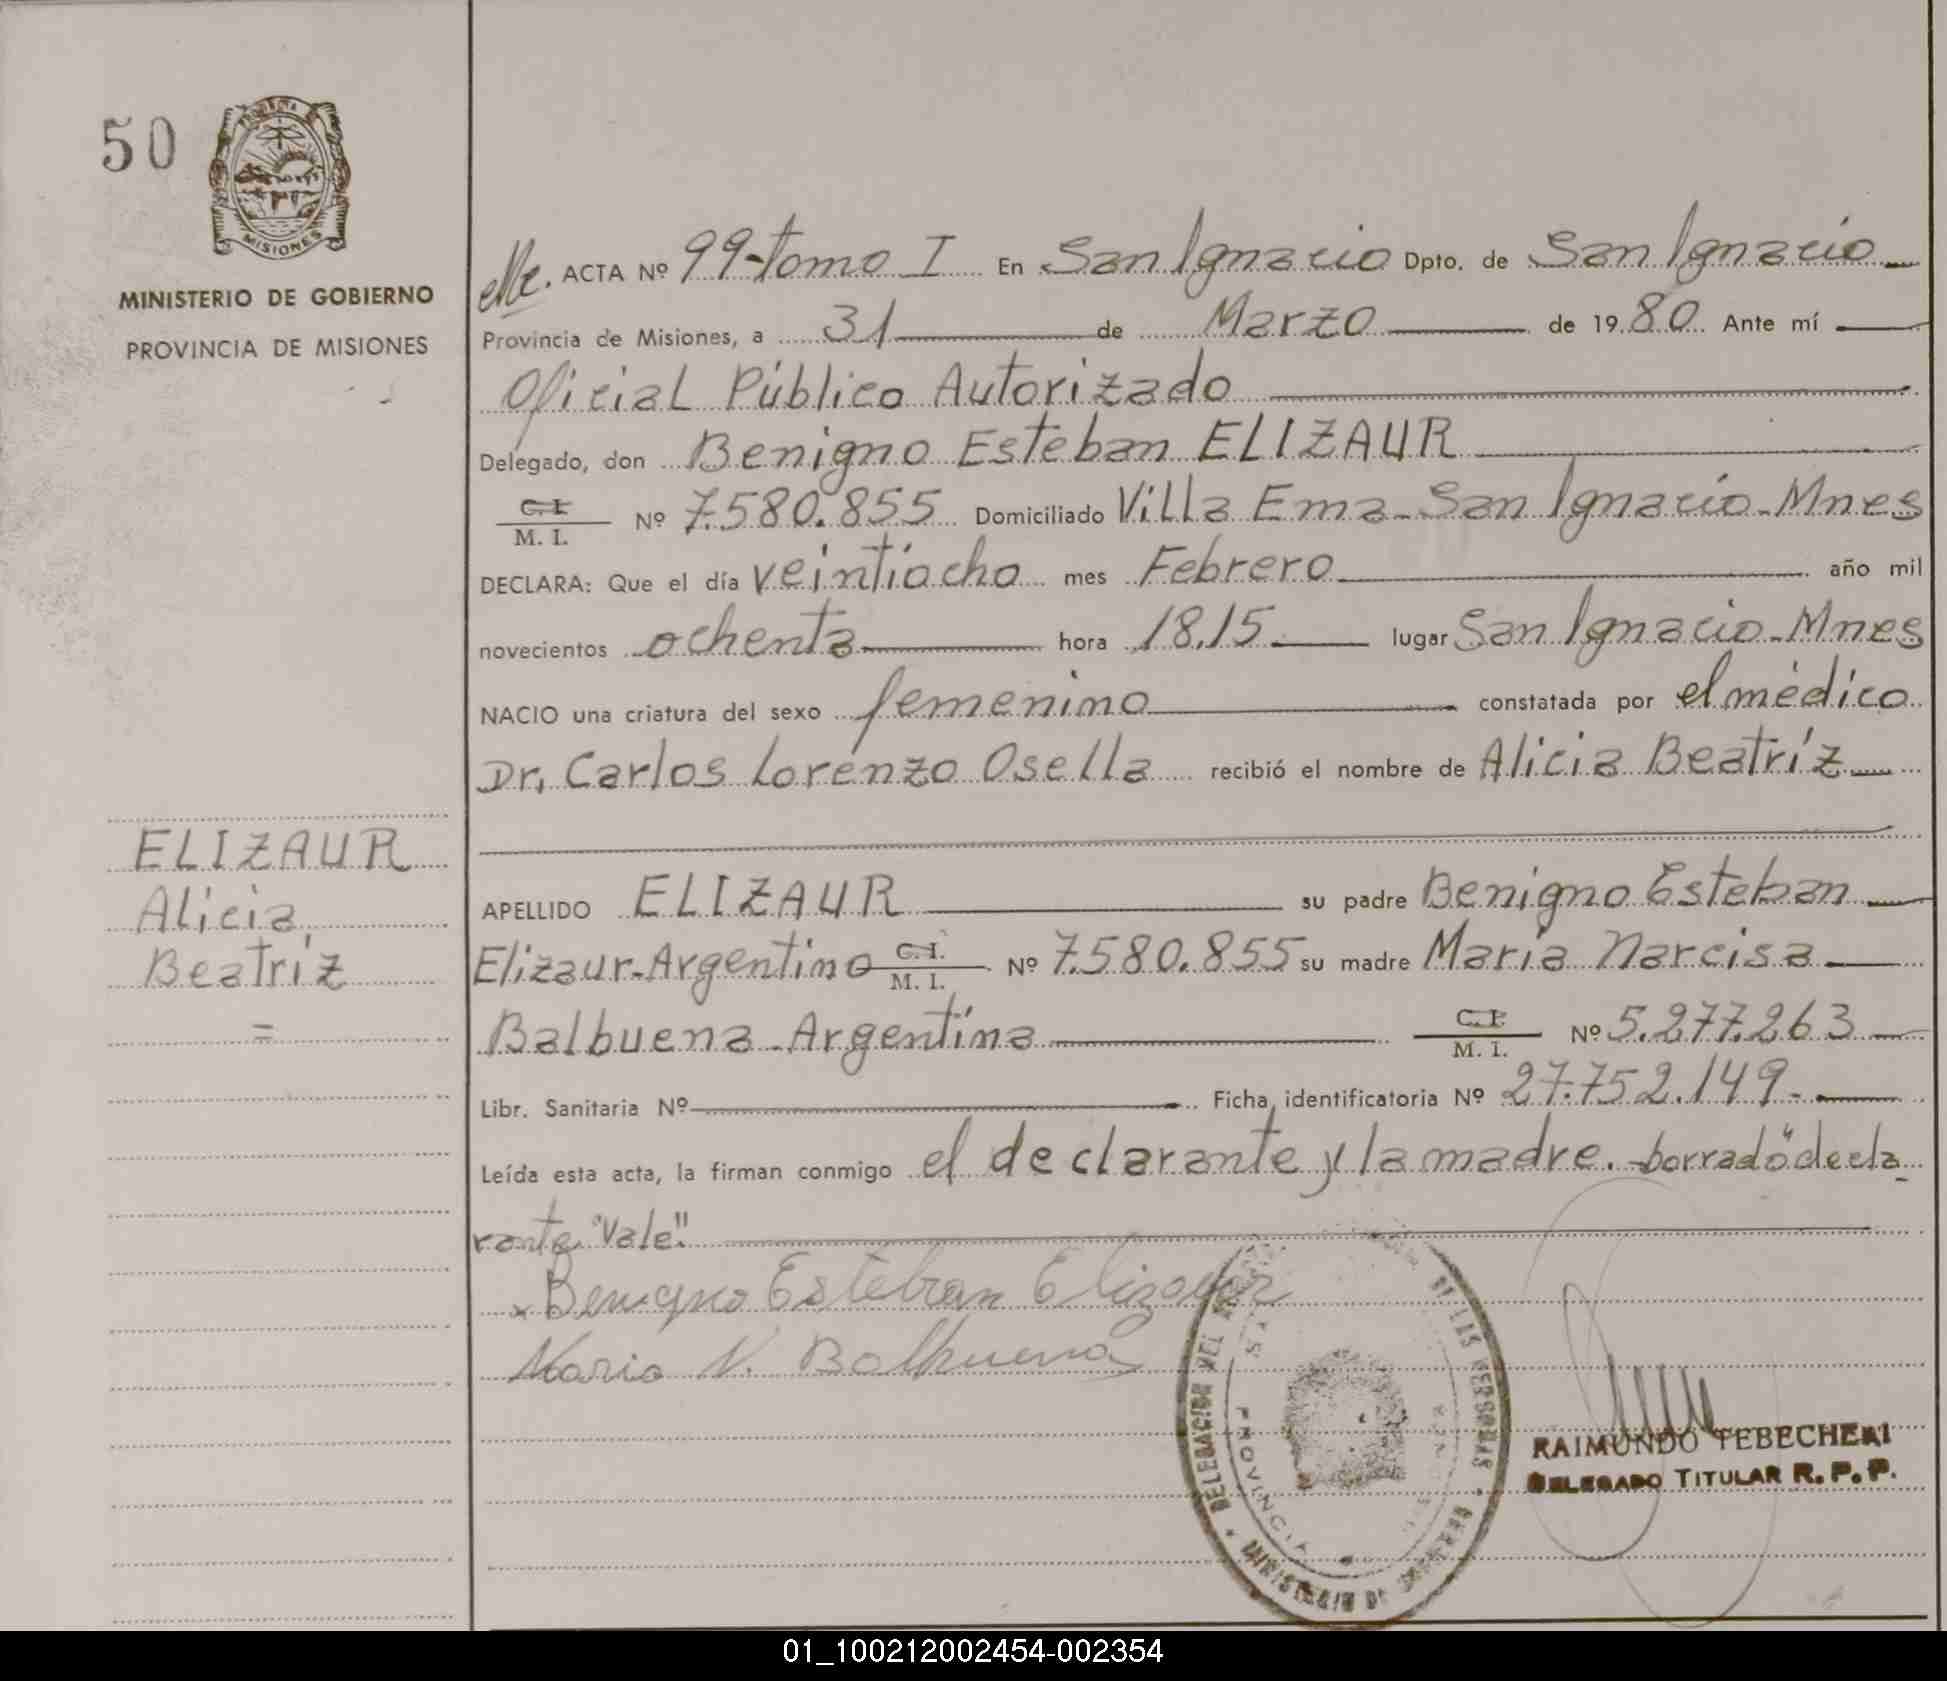 50
MISIONES
MINISTERIO DE GOBIERNO
PROVINCIA DE MISIONES
ELIZAUR
Alicia
Beatríz
=
ACTA Nº 99-tomo I En San Ignacio Dpto. de San Ignacio
Provincia de Misiones, a 31 de Marzo de 1980 Ante mí
Oficial Público Autorizado
Delegado, don Benigno Esteban ELIZAUR
C. I. M. I. Nº 7.580.855 Domiciliado Villa Ema-San Ignacio-Mnes
DECLARA: Que el día veintiocho mes Febrero año mil
novecientos ochenta hora 18.15 lugar San Ignacio-Mnes
NACIO una criatura del sexo femenino constatada por el médico
Dr. Carlos Lorenzo Osella recibió el nombre de Alicia Beatríz
APELLIDO ELIZAUR su padre Benigno Esteban
Elizaur-Argentino C. I. M. I. Nº 7.580.855 su madre María Narcisa
Balbuena-Argentina C. I. M. I. Nº 5.277.263
Libr. Sanitaria Nº Ficha identificatoria Nº 27.752.149-
Leída esta acta, la firman conmigo el declarante y la madre. -borrado "decla
rante "Vale".
Benigno Esteban Elizaur
Maria N. Balbuena
DELEGACION DEL DE LAS PERSONAS
PROVINCIA
MINISTERIO DE
RAIMUNDO TEBECHERI
DELEGADO TITULAR R. P. P.
01_100212002454-002354